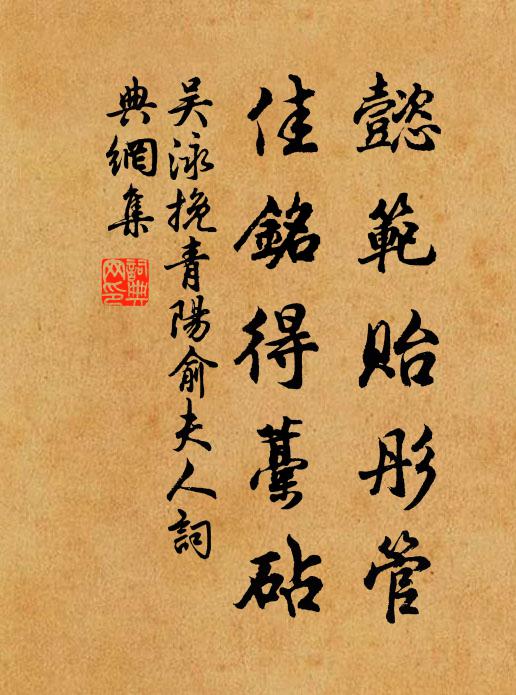 懿範貽彤管
佳銘得藁砧
吴泳挽青陽俞夫人詞
典網集
詞典網印